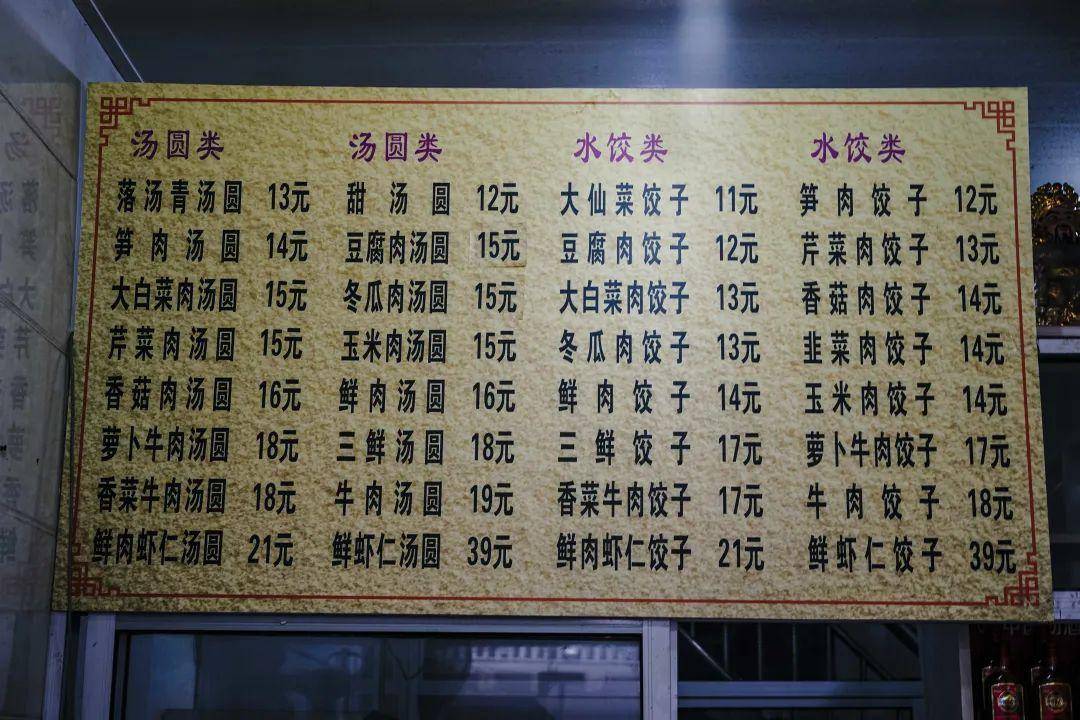 汤圆类 汤圆类 水饺类 水饺类
落汤青汤圆 13元 甜汤圆 12元 大仙菜饺子 11元 笋肉饺子 12元
笋肉汤圆 14元 豆腐肉汤圆 15元 豆腐肉饺子 12元 芹菜肉饺子 13元
大白菜肉汤圆 15元 冬瓜肉汤圆 15元 大白菜肉饺子 13元 香菇肉饺子 14元
芹菜肉汤圆 15元 玉米肉汤圆 15元 冬瓜肉饺子 13元 韭菜肉饺子 14元
香菇肉汤圆 16元 鲜肉汤圆 16元 鲜肉饺子 14元 玉米肉饺子 14元
萝卜牛肉汤圆 18元 三鲜汤圆 18元 三鲜饺子 17元 萝卜牛肉饺子 17元
香菜牛肉汤圆 18元 牛肉汤圆 19元 香菜牛肉饺子 17元 牛肉饺子 18元
鲜肉虾仁汤圆 21元 鲜虾仁汤圆 39元 鲜肉虾仁饺子 21元 鲜虾仁饺子 39元